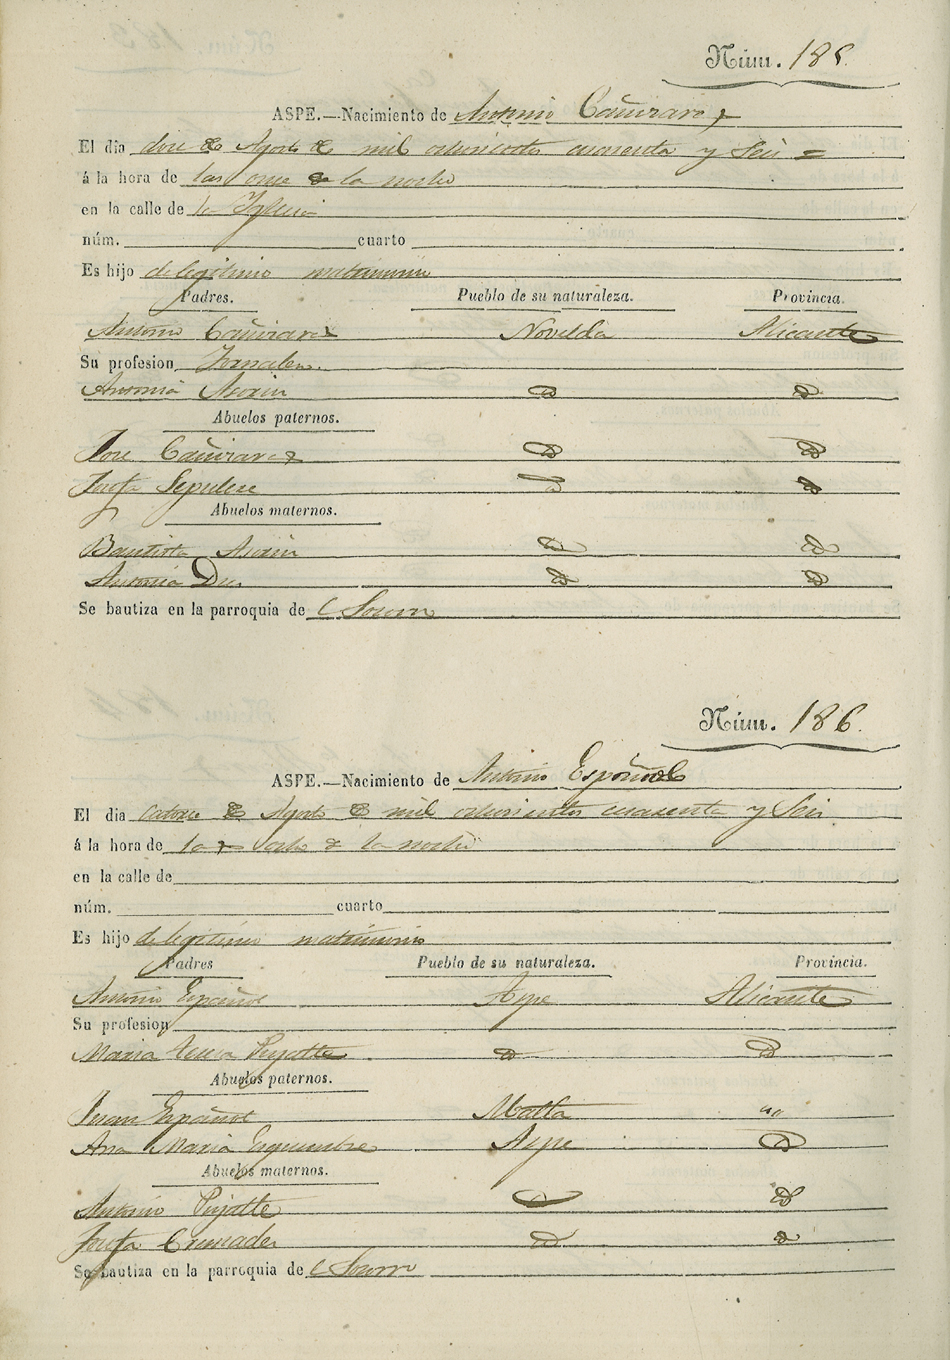 Núm. 185.
ASPE.—Nacimiento de Antonio Cañizares
El dia doce de Agosto de mil ochocientos cuarenta y Seis =
á la hora de las once de la noche
en la calle de la Iglesia
núm. cuarto
Es hijo de legitimo matrimonio
Padres. Pueblo de su naturaleza. Provincia.
Antonio Cañizares Novelda Alicante
Su profesion Jornalero.
Antonia
Abuelos paternos.
Jose Cañizares
Josefa Sepulcre
Abuelos maternos.
Bautista
Antonia
Se bautiza en la parroquia de
Núm. 186.
ASPE.—Nacimiento de Antonio Español
El dia catorce de Agosto de mil ochocientos cuarenta y Seis
á la hora de las ocho de la noche
en la calle de
núm. cuarto
Es hijo de legitimo matrimonio
Padres Pueblo de su naturaleza. Provincia.
Antonio Español Aspe Alicante
Su profesion
Maria Teresa Pujalte
Abuelos paternos.
Juan Español
Ana Maria Aspe
Abuelos maternos.
Antonio Pujalte
Josefa Cremades
Se bautiza en la parroquia de